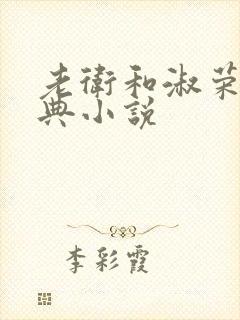 老衛和淑荣
典小说
李彩霞